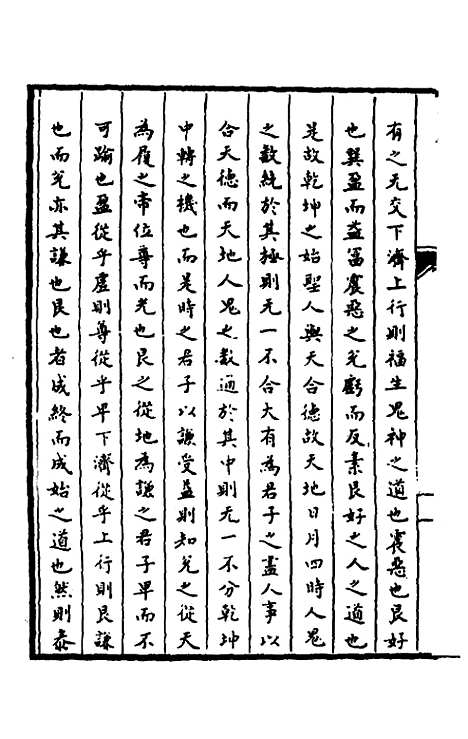 有之无交下濟上行則福生鬼神之道也震惡也艮好
也巽盈而益富震惡之兌虧而反素艮好之人之道也
是故乾坤之始聖人與天合德故天地日月四時人鬼
之數純於其極則无一不合大有為君子之盡人事以
合天德而天地人鬼之數通於其中則无一不分乾坤
中轉之機也而是時之君子以謙受益則知兌之從天
為履之帝位尊而光也艮之從地為謙之君子卑而不
可踰也盈從乎虛則尊從乎卑下濟從乎上行則艮謙
也而兌亦其謙也艮也者成終而成始之道也然則泰